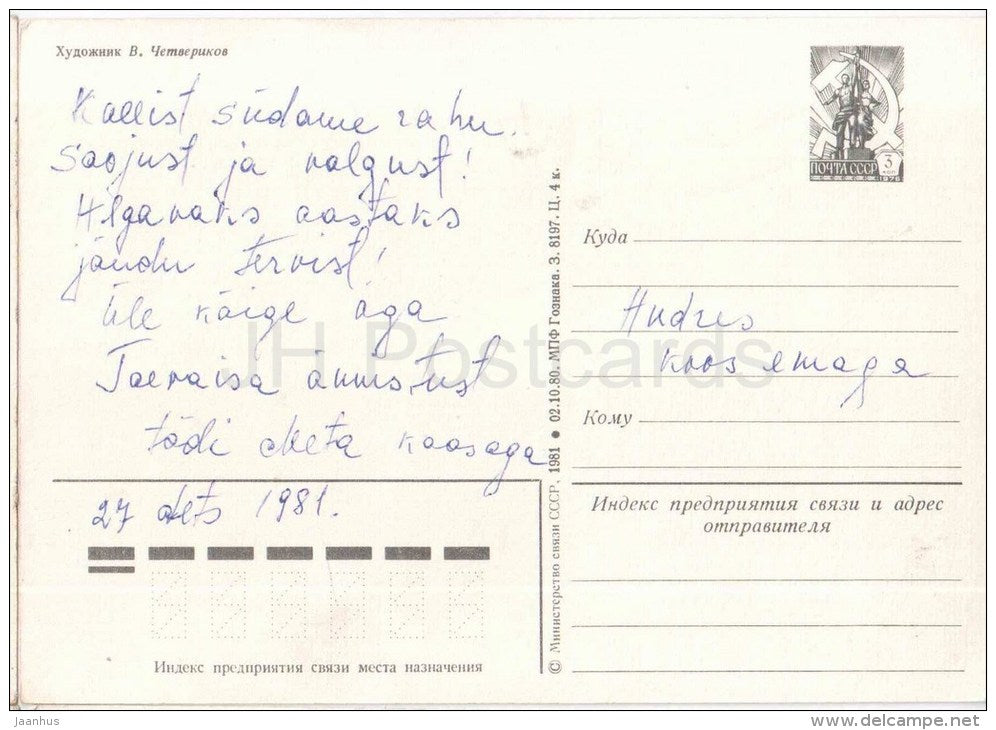 Художник В. Четвериков
Kallist südame rahu.
Soojust ja valgust!
Algavaks aastaks
jõudu tervist!
Üle kõige aga
Taevaisa õnnistust
tädi Meta kaasaga
27 dets 1981.
Индекс предприятия связи места назначения
© Министерство связи СССР, 1981 ● 02.10.80. МПФ Гознака. З. 8197. Ц. 4 к.
ПОЧТА СССР 3 КОП 1976
Куда
Andres
koos emaga
Кому
Индекс предприятия связи и адрес
отправителя
JH Postcards
Jaanhus
www.delcampe.net